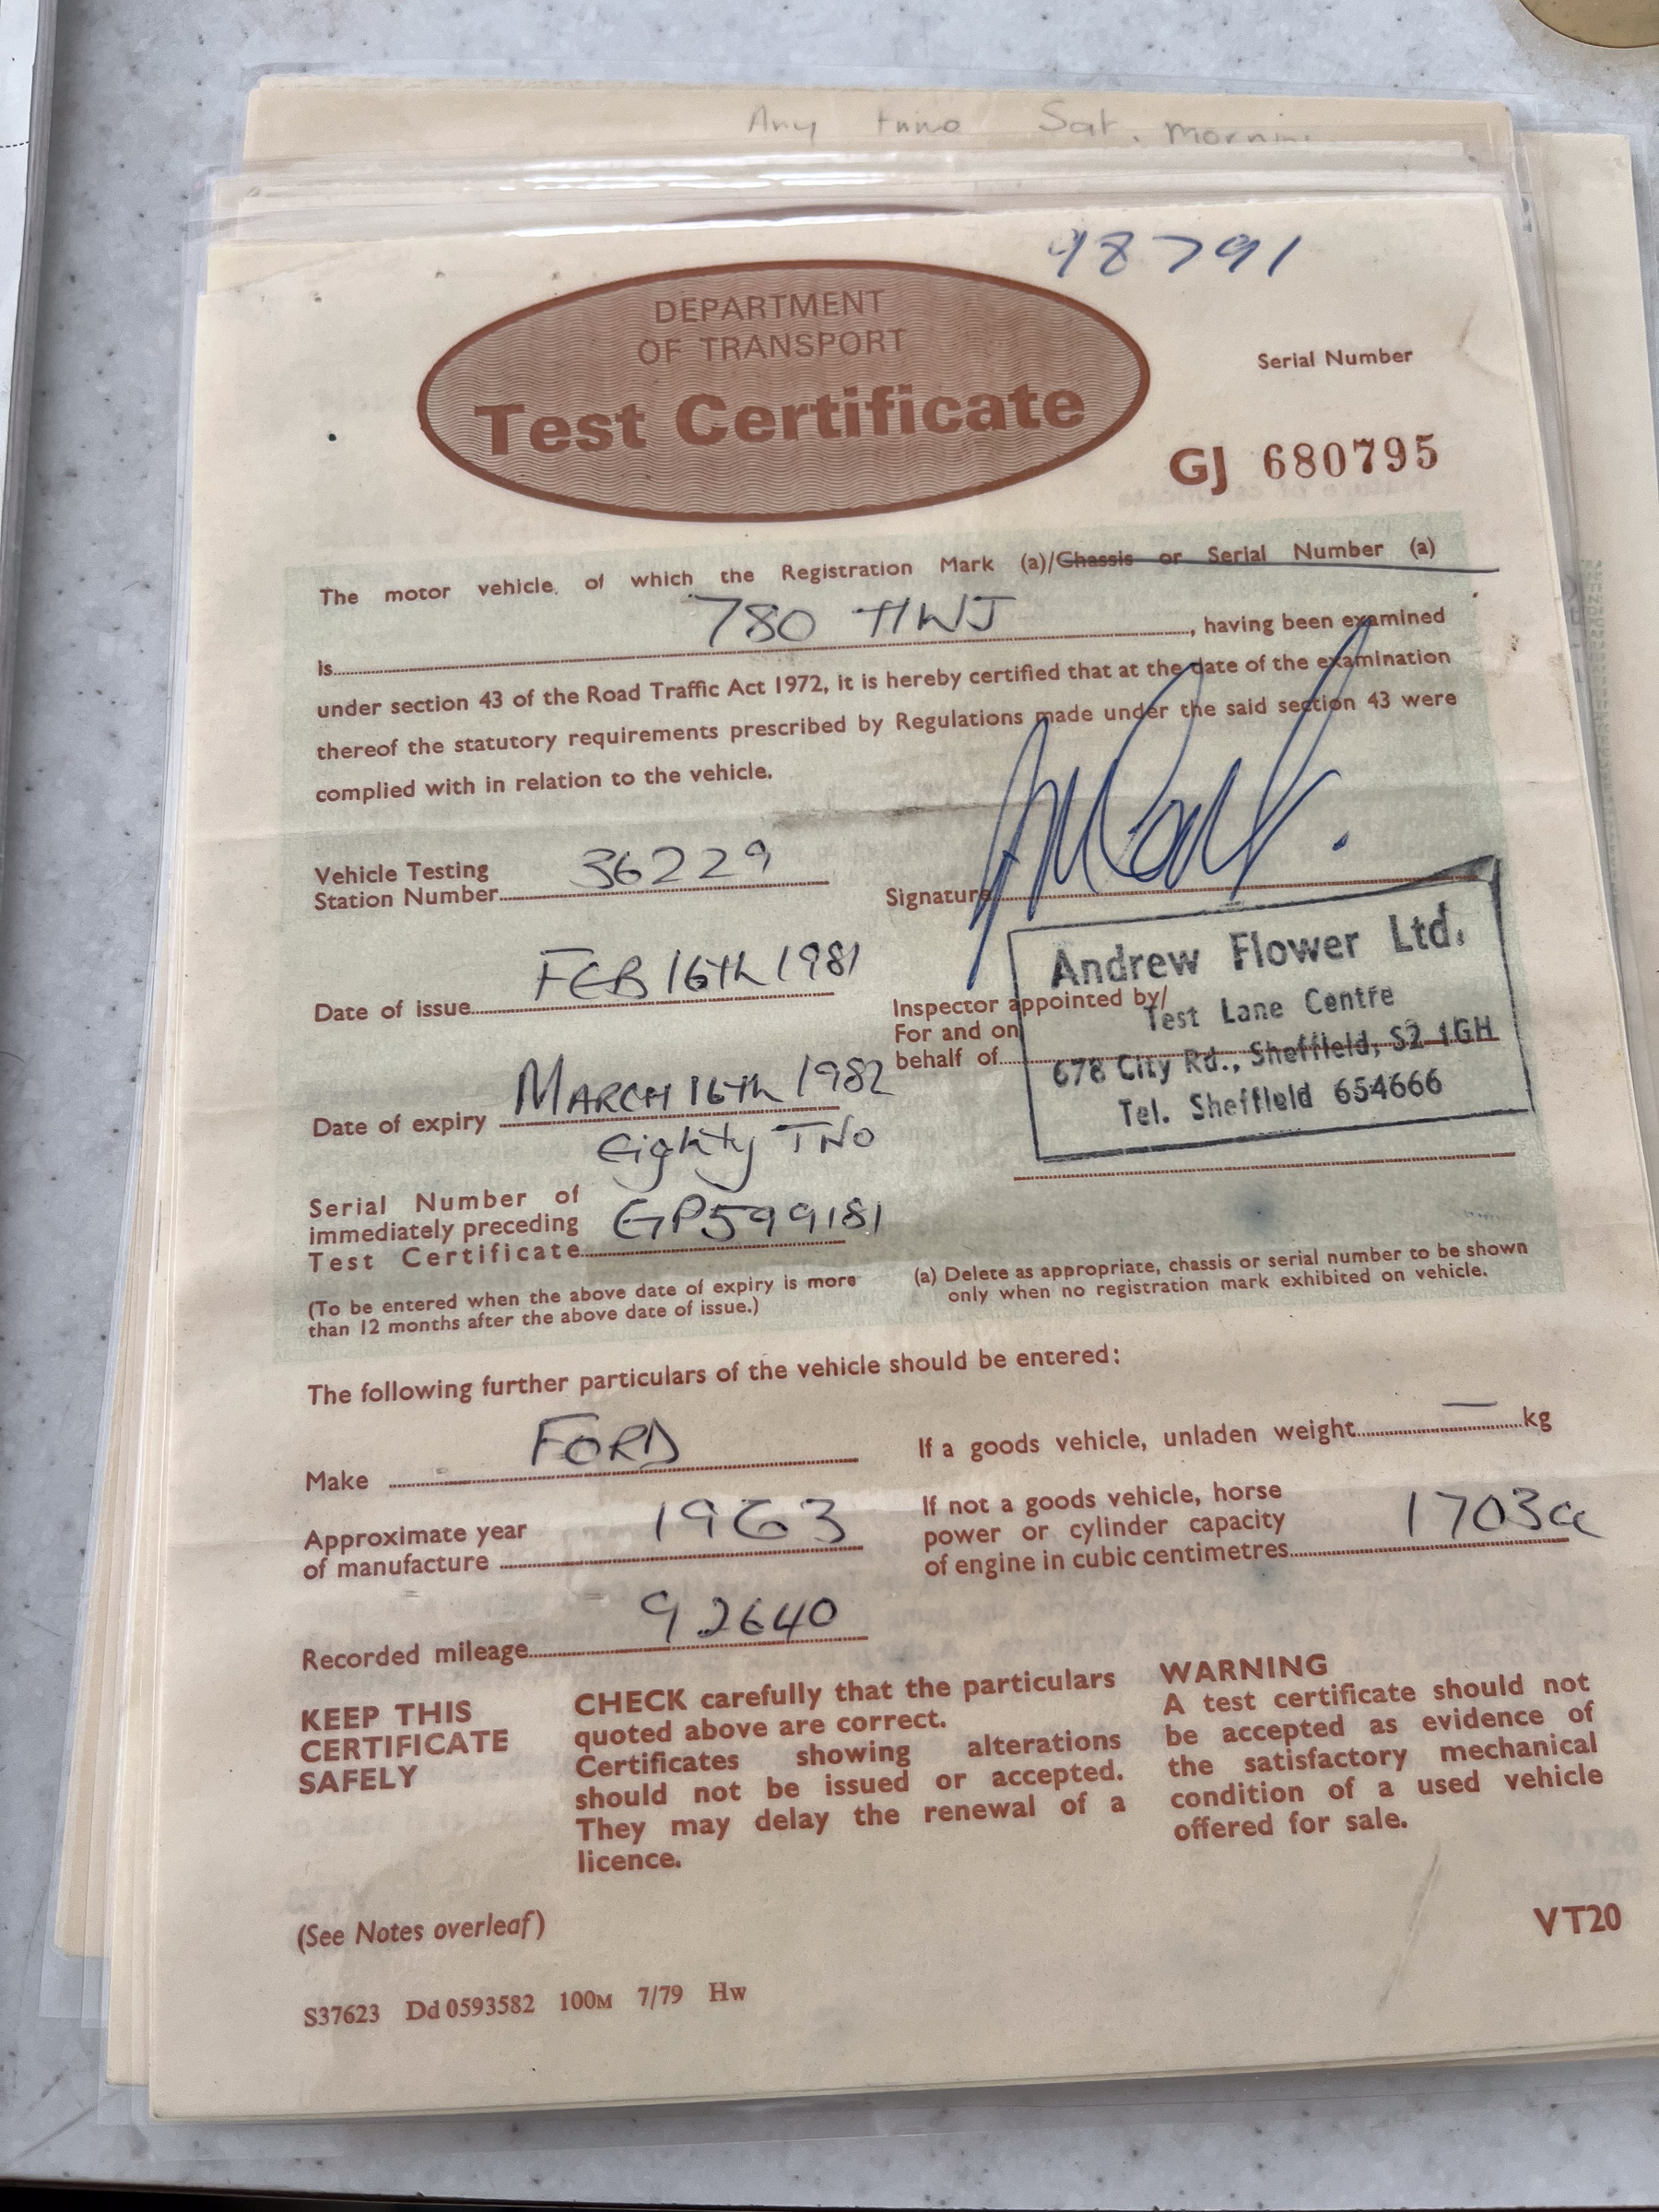 Any time Sat. morning
98791
DEPARTMENT
OF TRANSPORT
Test Certificate
Serial Number
GJ 680795
The motor vehicle, of which the Registration Mark (a)/Chassis or Serial Number (a)
is 780 HWJ, having been examined
under section 43 of the Road Traffic Act 1972, it is hereby certified that at the date of the examination
thereof the statutory requirements prescribed by Regulations made under the said section 43 were
complied with in relation to the vehicle.
Vehicle Testing
Station Number 36229
Signature
Date of issue FEB 16th 1981
Andrew Flower Ltd.
Test Lane Centre
678 City Rd., Sheffield, S2 1GH
Tel. Sheffield 654666
Inspector appointed by/
For and on
behalf of
Date of expiry MARCH 16th 1982
Eighty TWO
Serial Number of
immediately preceding
Test Certificate GP599181
(To be entered when the above date of expiry is more
than 12 months after the above date of issue.)
(a) Delete as appropriate, chassis or serial number to be shown
only when no registration mark exhibited on vehicle.
The following further particulars of the vehicle should be entered:
Make FORD
If a goods vehicle, unladen weight — kg
Approximate year
of manufacture 1963
If not a goods vehicle, horse
power or cylinder capacity
of engine in cubic centimetres 1703cc
Recorded mileage 92640
KEEP THIS
CERTIFICATE
SAFELY
CHECK carefully that the particulars
quoted above are correct.
Certificates showing alterations
should not be issued or accepted.
They may delay the renewal of a
licence.
WARNING
A test certificate should not
be accepted as evidence of
the satisfactory mechanical
condition of a used vehicle
offered for sale.
(See Notes overleaf)
VT20
S37623 Dd 0593582 100M 7/79 Hw